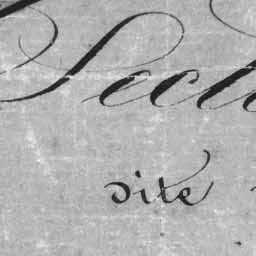 Secti
dite